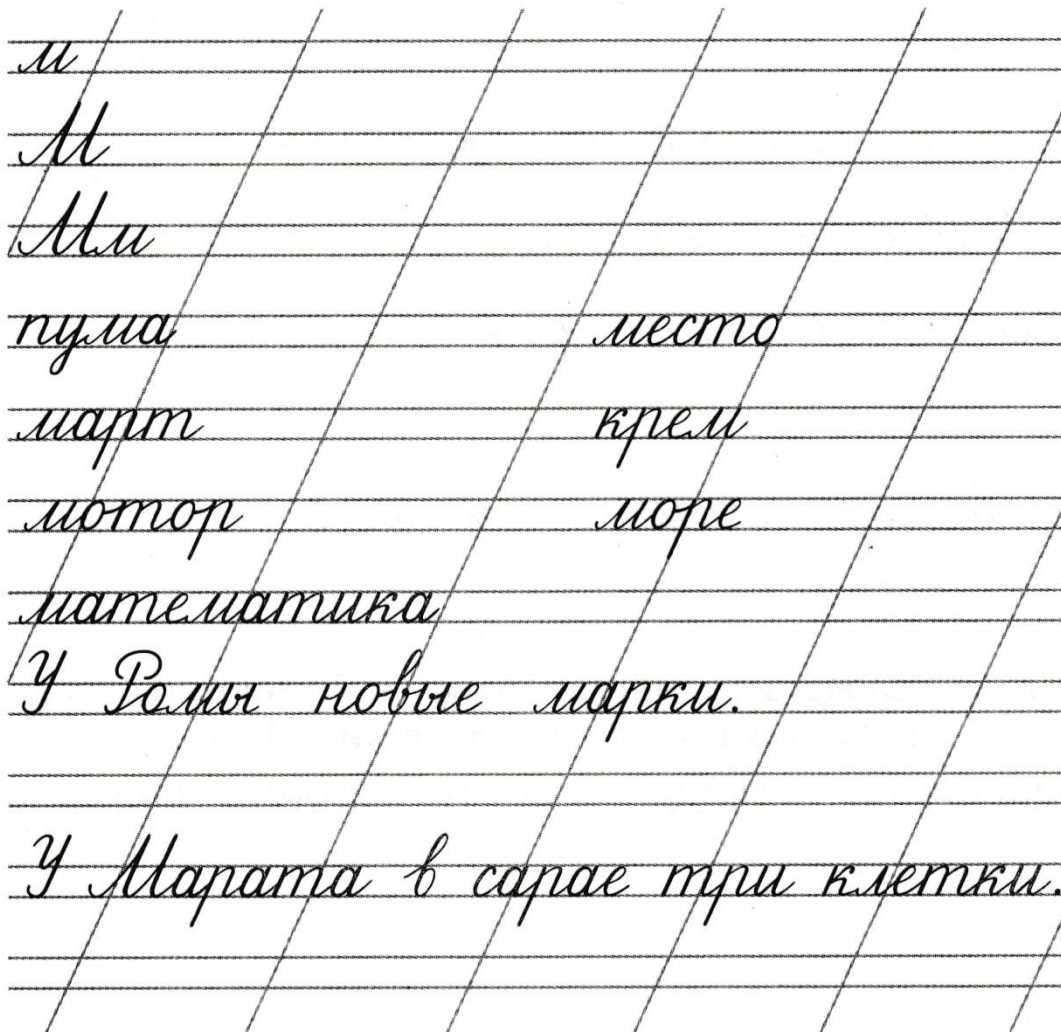 м
М
Мм
пума место
март крем
мотор море
математика
У Ромы новые марки.
У Марата в сарае три клетки.